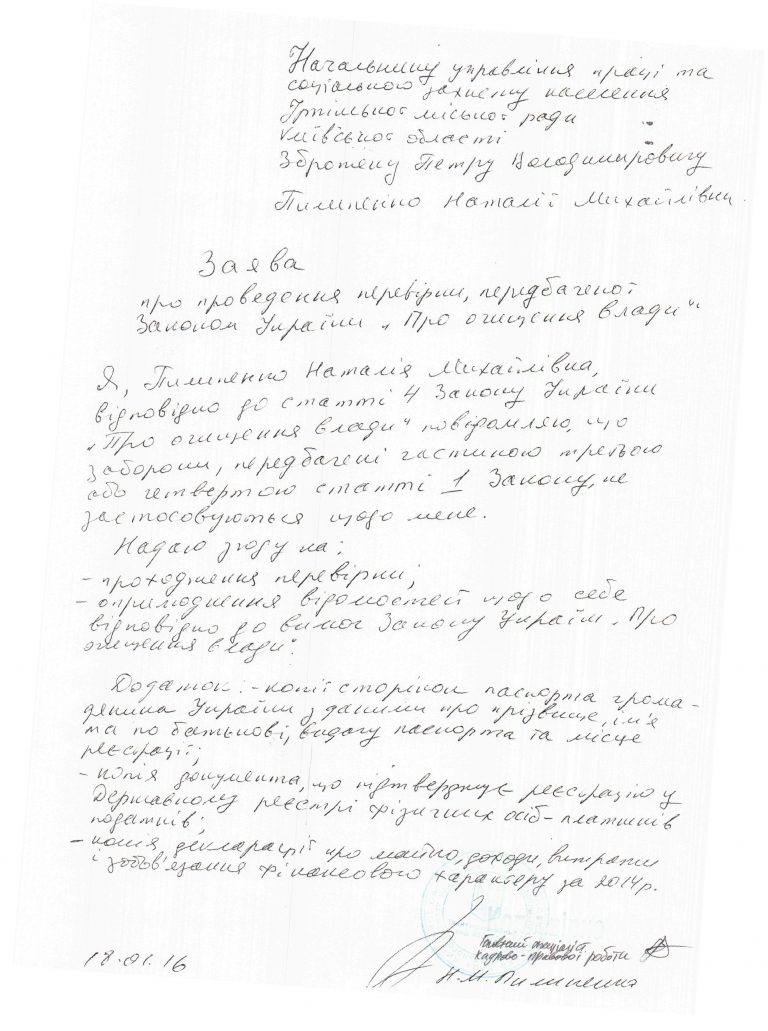 Начальнику управління праці та
соціального захисту населення
Ірпінської міської ради
Київської області
Збротену Петру Володимировичу
Пилипенко Наталії Михайлівни.
Заява
про проведення перевірки, передбаченої
Законом України „Про очищення влади"
Я, Пилипенко Наталія Михайлівна,
відповідно до статті 4 Закону України
„Про очищення влади" повідомляю, що
заборони, передбачені частиною третьою
або четвертою статті 1 Закону, не
застосовуються щодо мене.
Надаю згоду на:
- проходження перевірки;
- оприлюднення відомостей щодо себе
відповідно до вимог Закону України „Про
очищення влади".
Додаток: - копії сторінок паспорта грома-
дянина України з даними про прізвище, ім'я
та по батькові, видачу паспорта та місце
реєстрації;
- копія документа, що підтверджує реєстрацію у
Державному реєстрі фізичних осіб - платників
податків;
- копія декларації про майно, доходи, витрати
і зобов'язання фінансового характеру за 2014 р.
Головний спеціаліст
кадрово-правової роботи
18.01.16
Н.М. Пилипенко